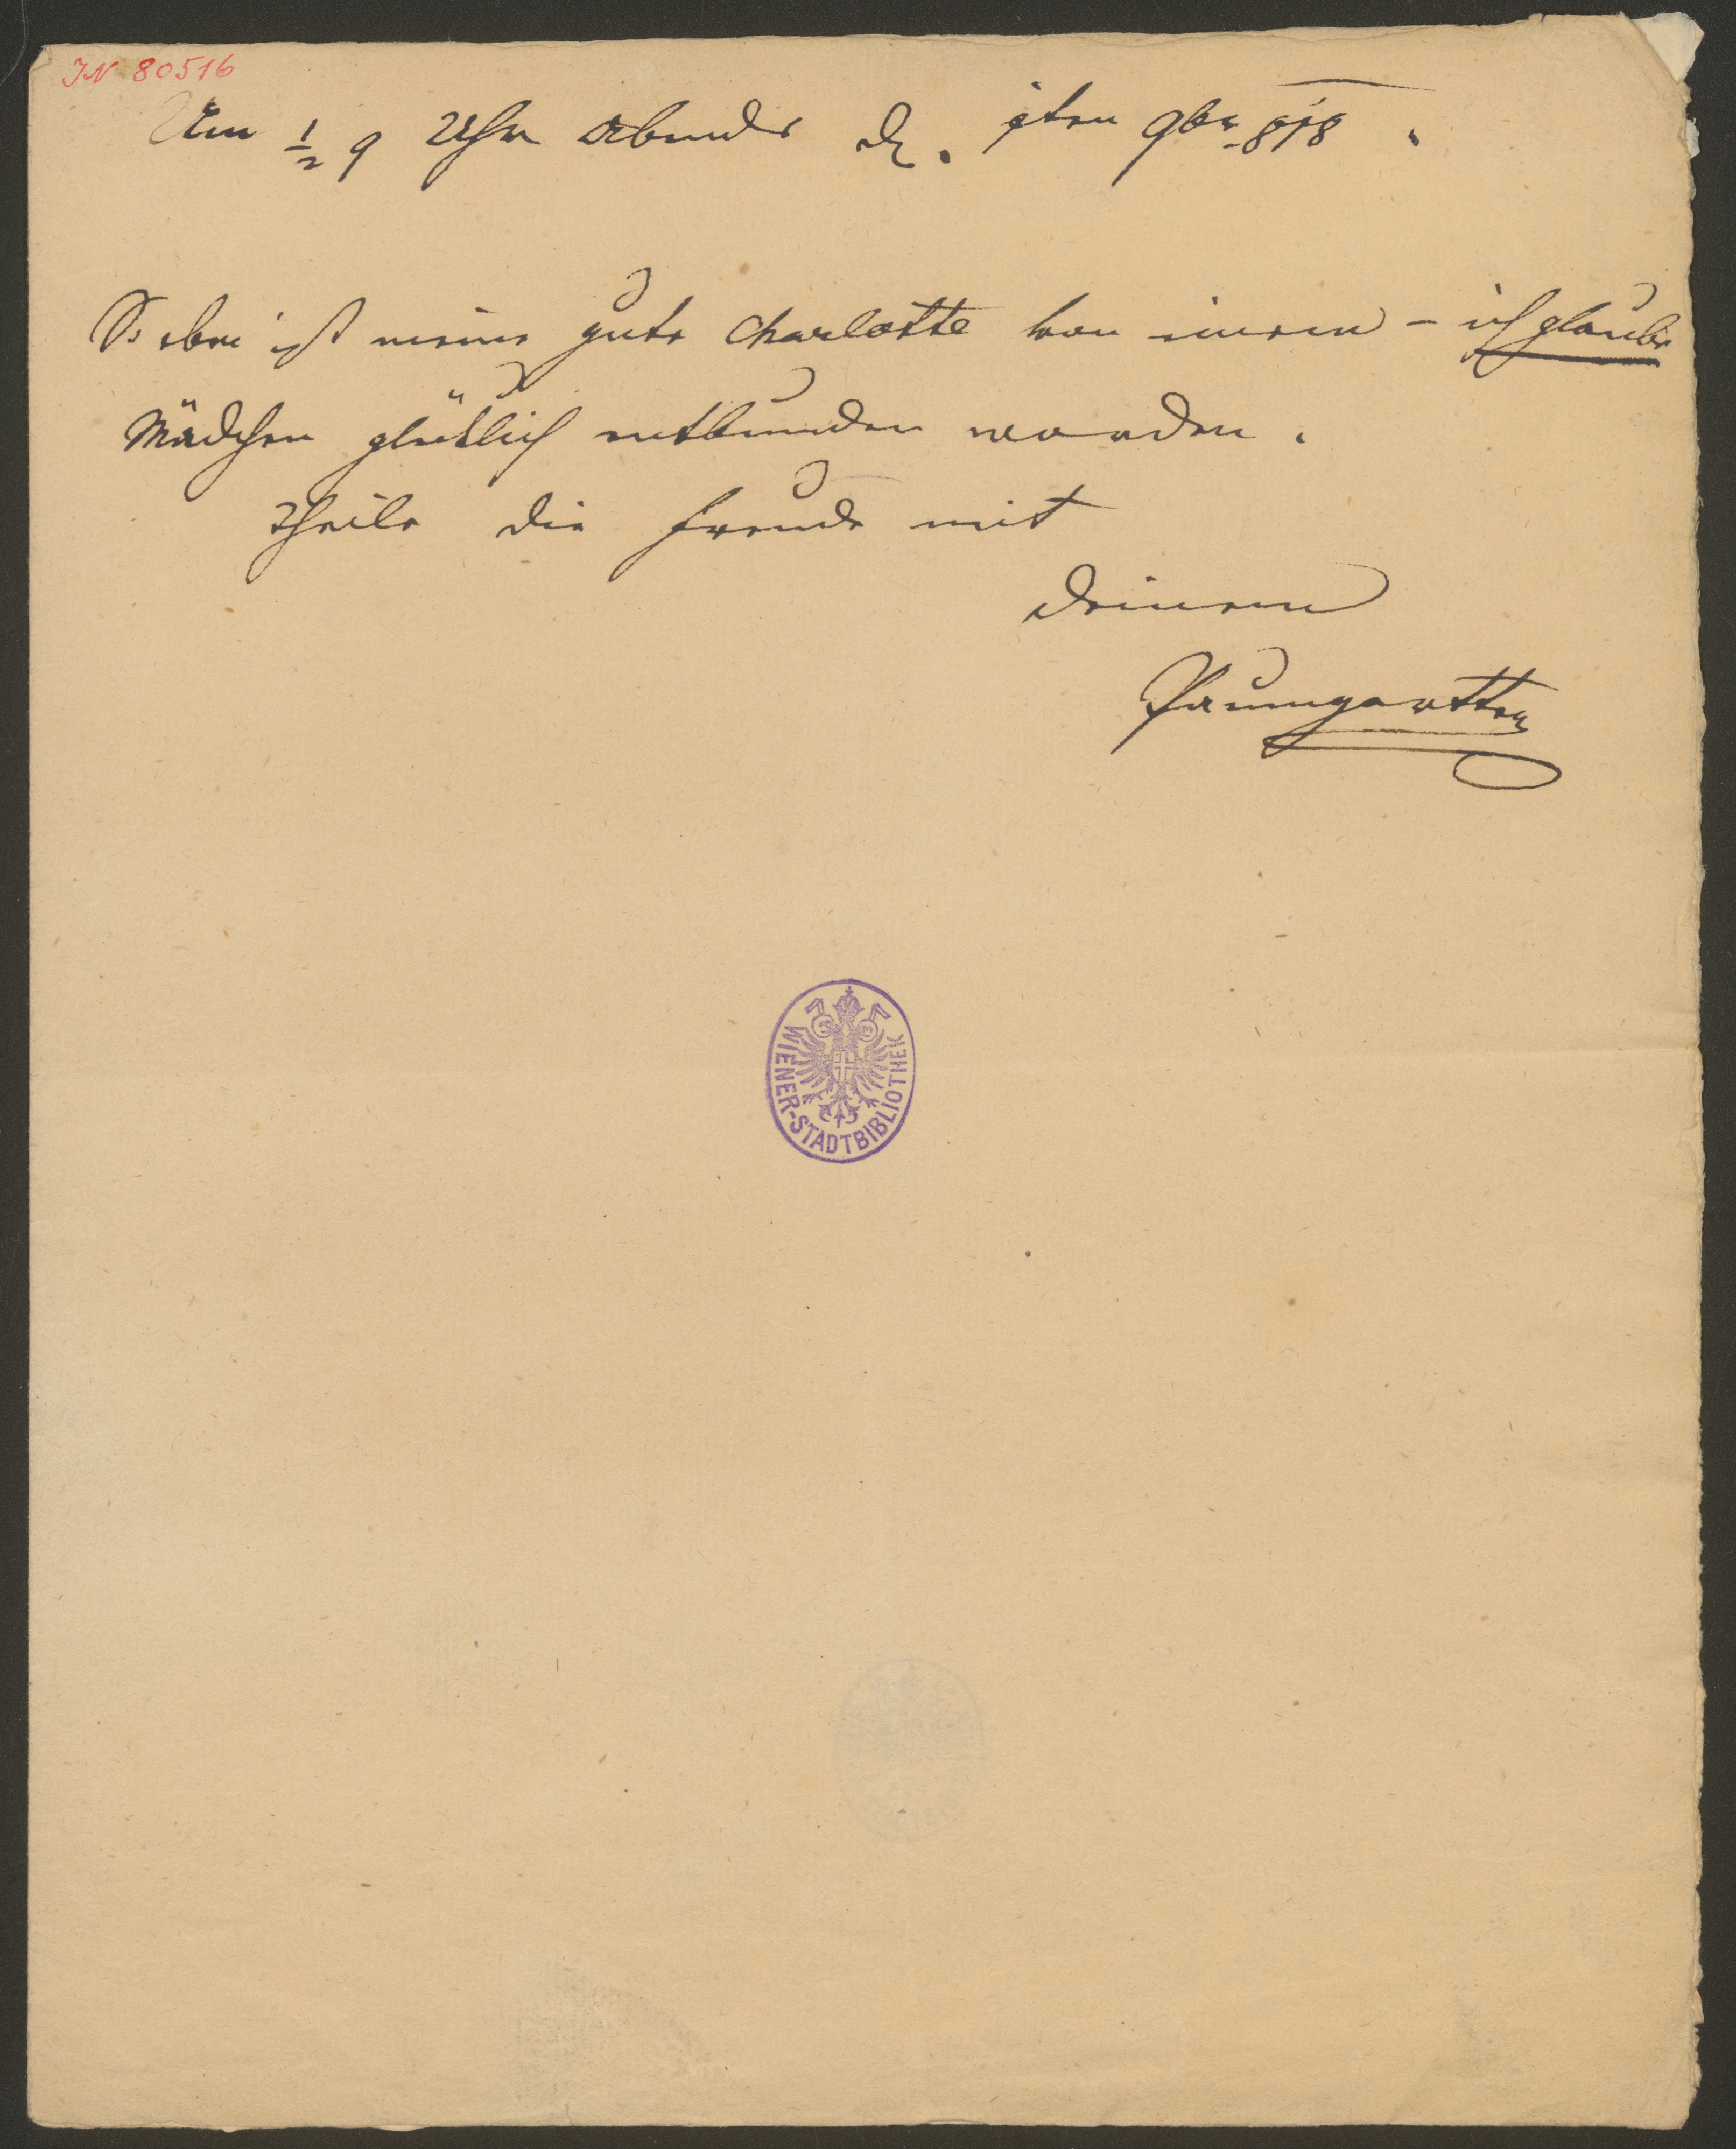 IN 80516
Um ½ 9 Uhr Abends d. 9ten 9br 818.
So eben ist meine gute Charlotte von einem - ich glaube
Mädchen glüklich entbunden worden.
Theile die Freude mit
Deinem
Paumgartten
WIENER-STADTBIBLIOTHEK